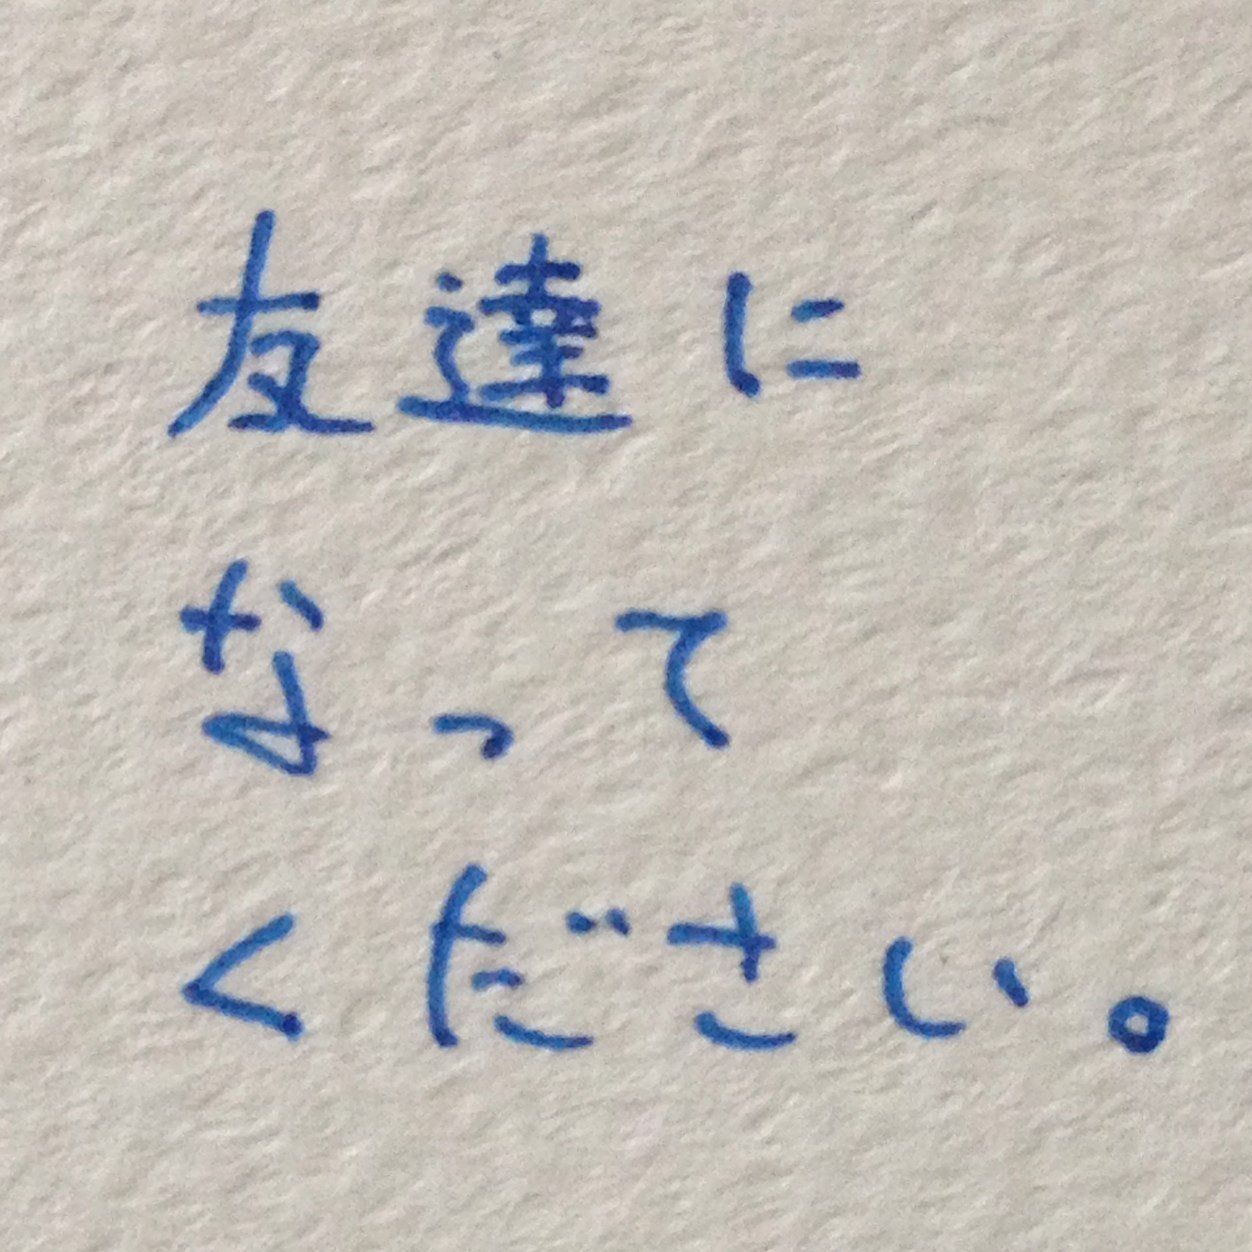 友達に
なって
ください。